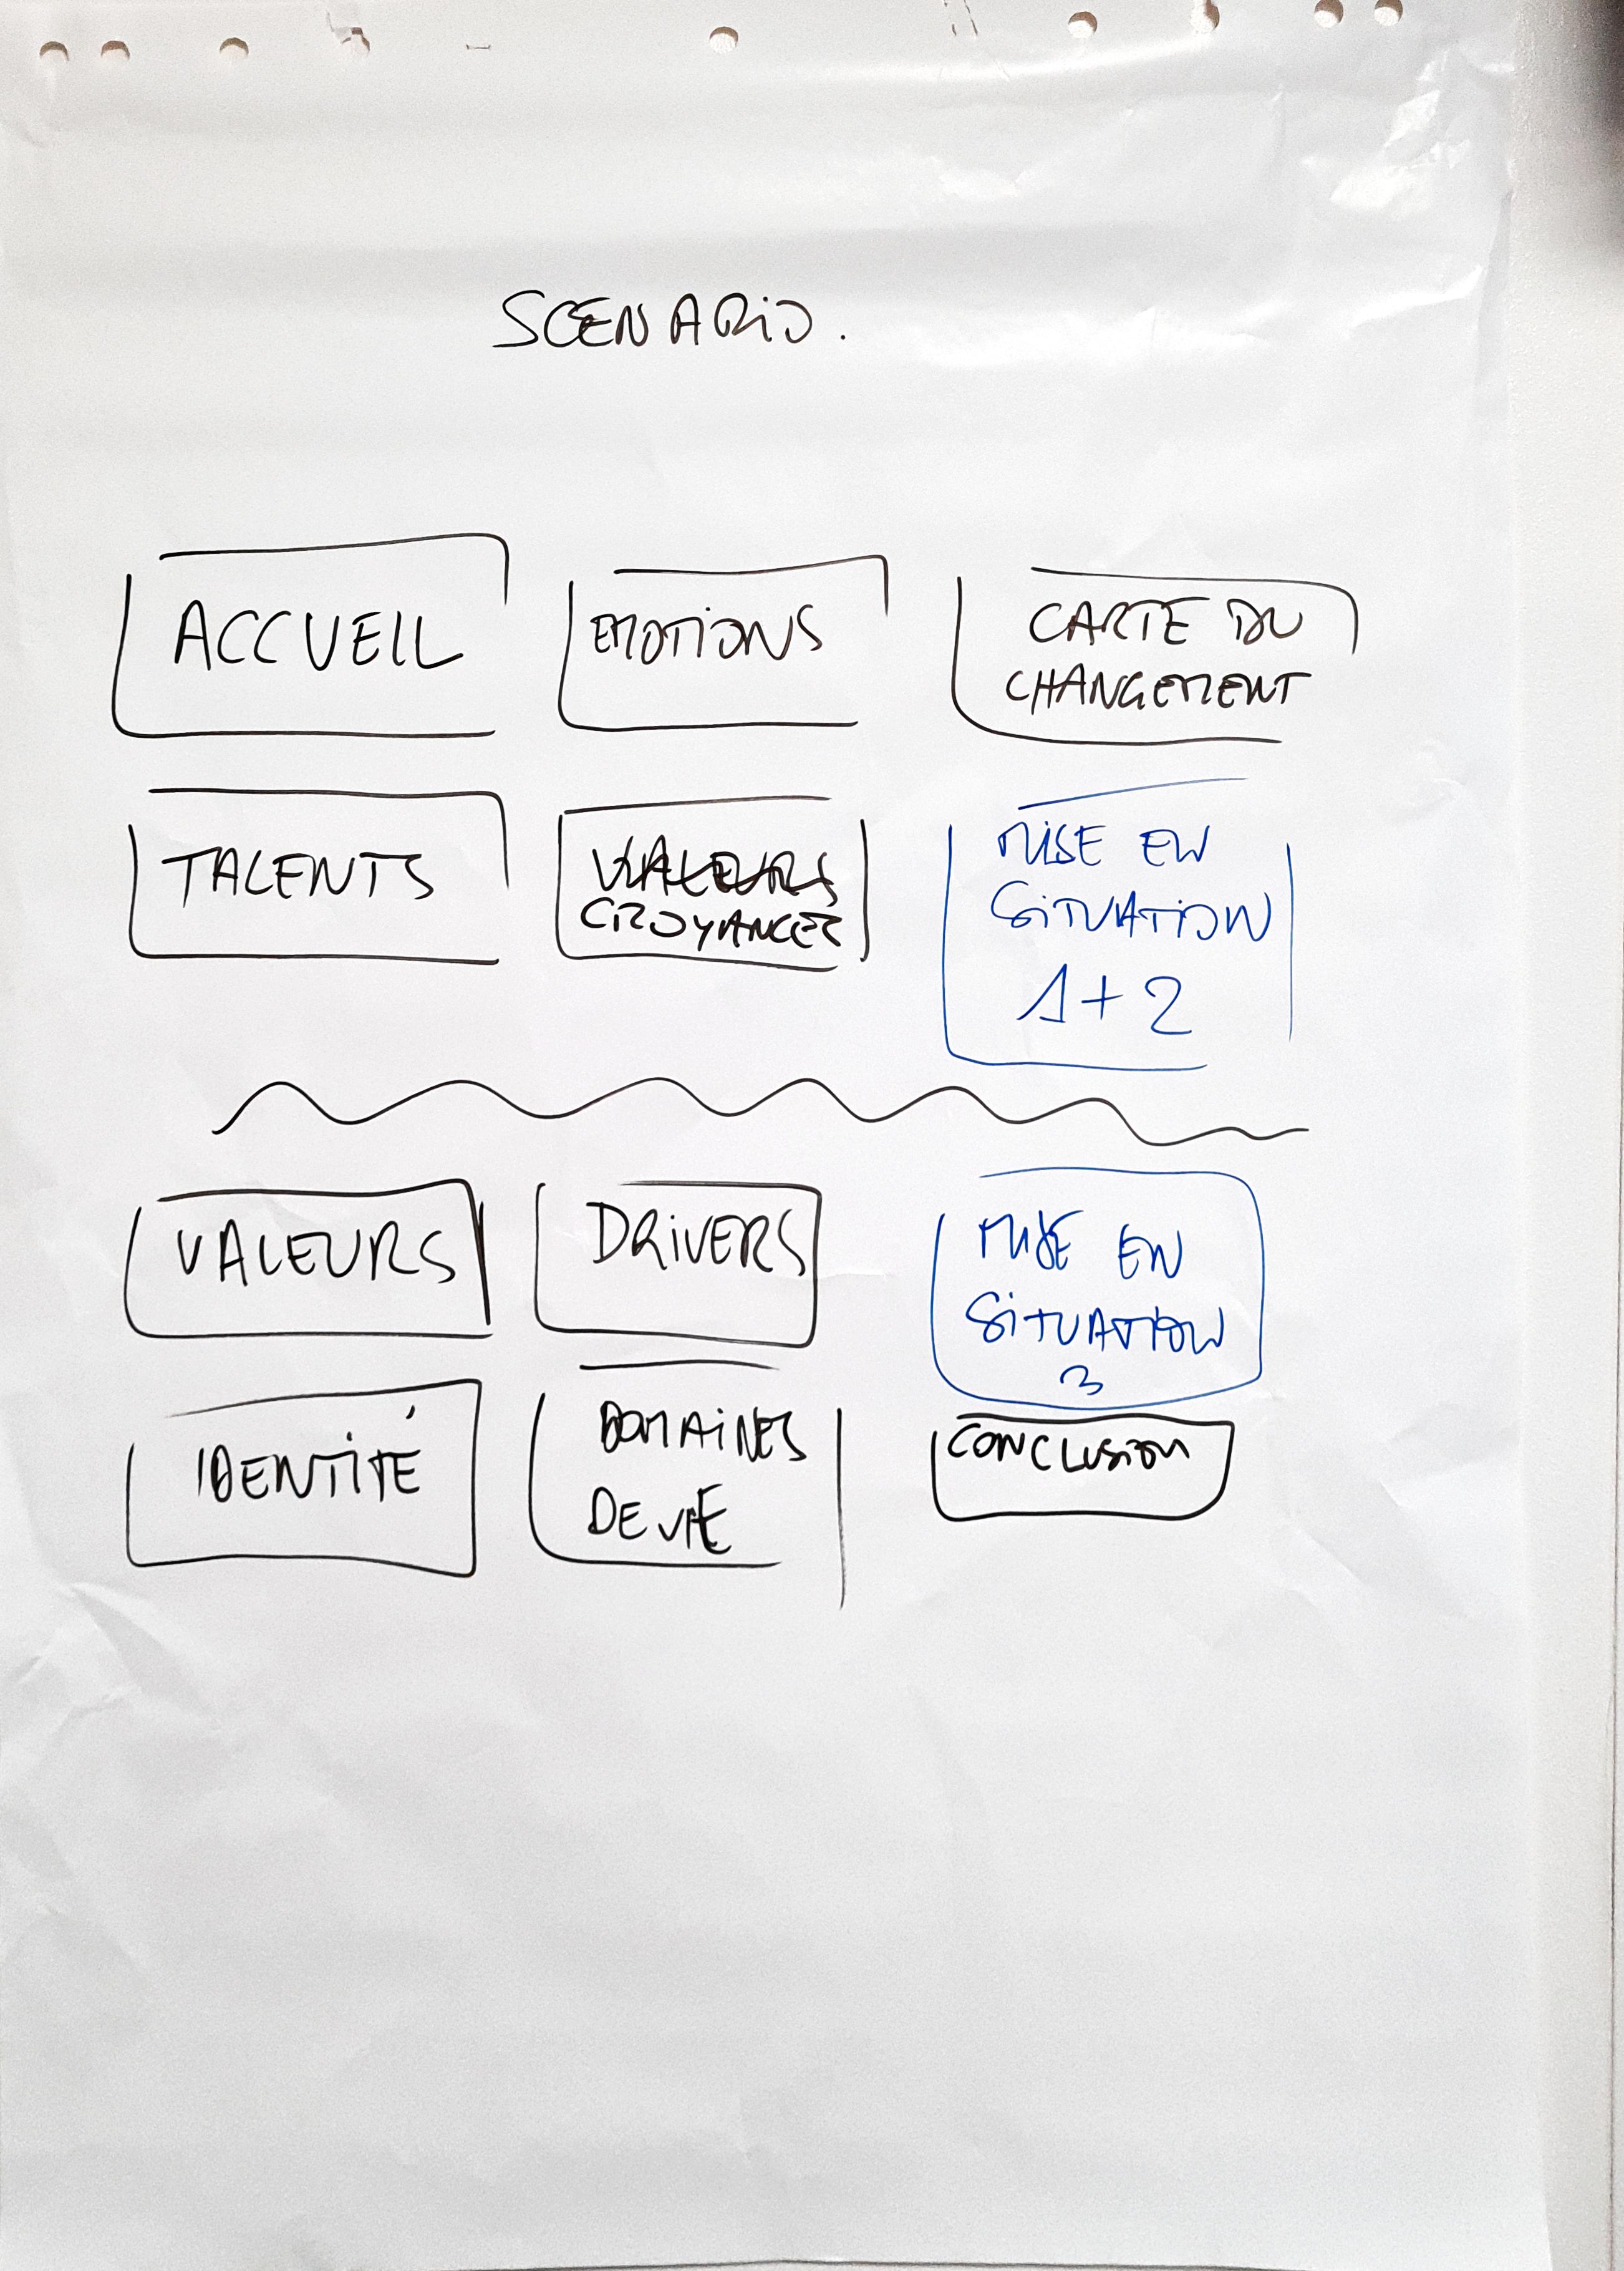 SCENARIO.
ACCUEIL
EMOTIONS
CARTE DU
CHANGEMENT
TALENTS
VALEURS
CROYANCES
MISE EN
SITUATION
1+2
VALEURS
DRIVERS
MISE EN
SITUATION
3
IDENTITÉ
DOMAINES
DE VIE
CONCLUSION